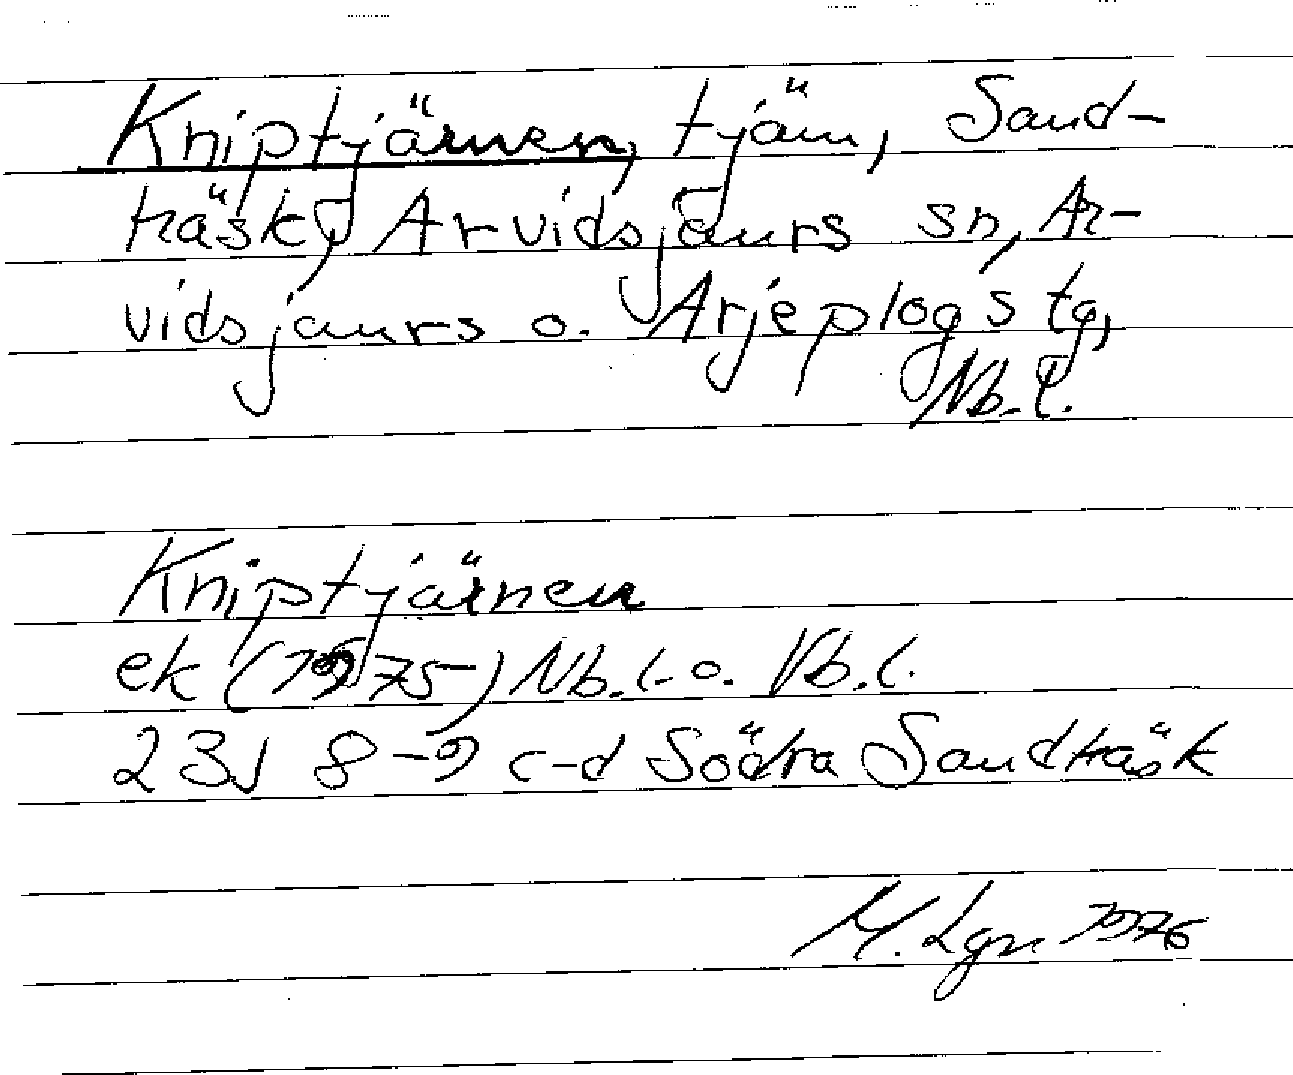 Kniptjärnen, tjärn, Sand-
träsk, Arvidsjaurs sn, Ar-
vidsjaurs o. Arjeplogs tg,
Nb.l.
Kniptjärnen
ek (1975) Nb.l. o. Vb.l.
23J 8-9 c-d Södra Sandträsk
M. Lgn 1976